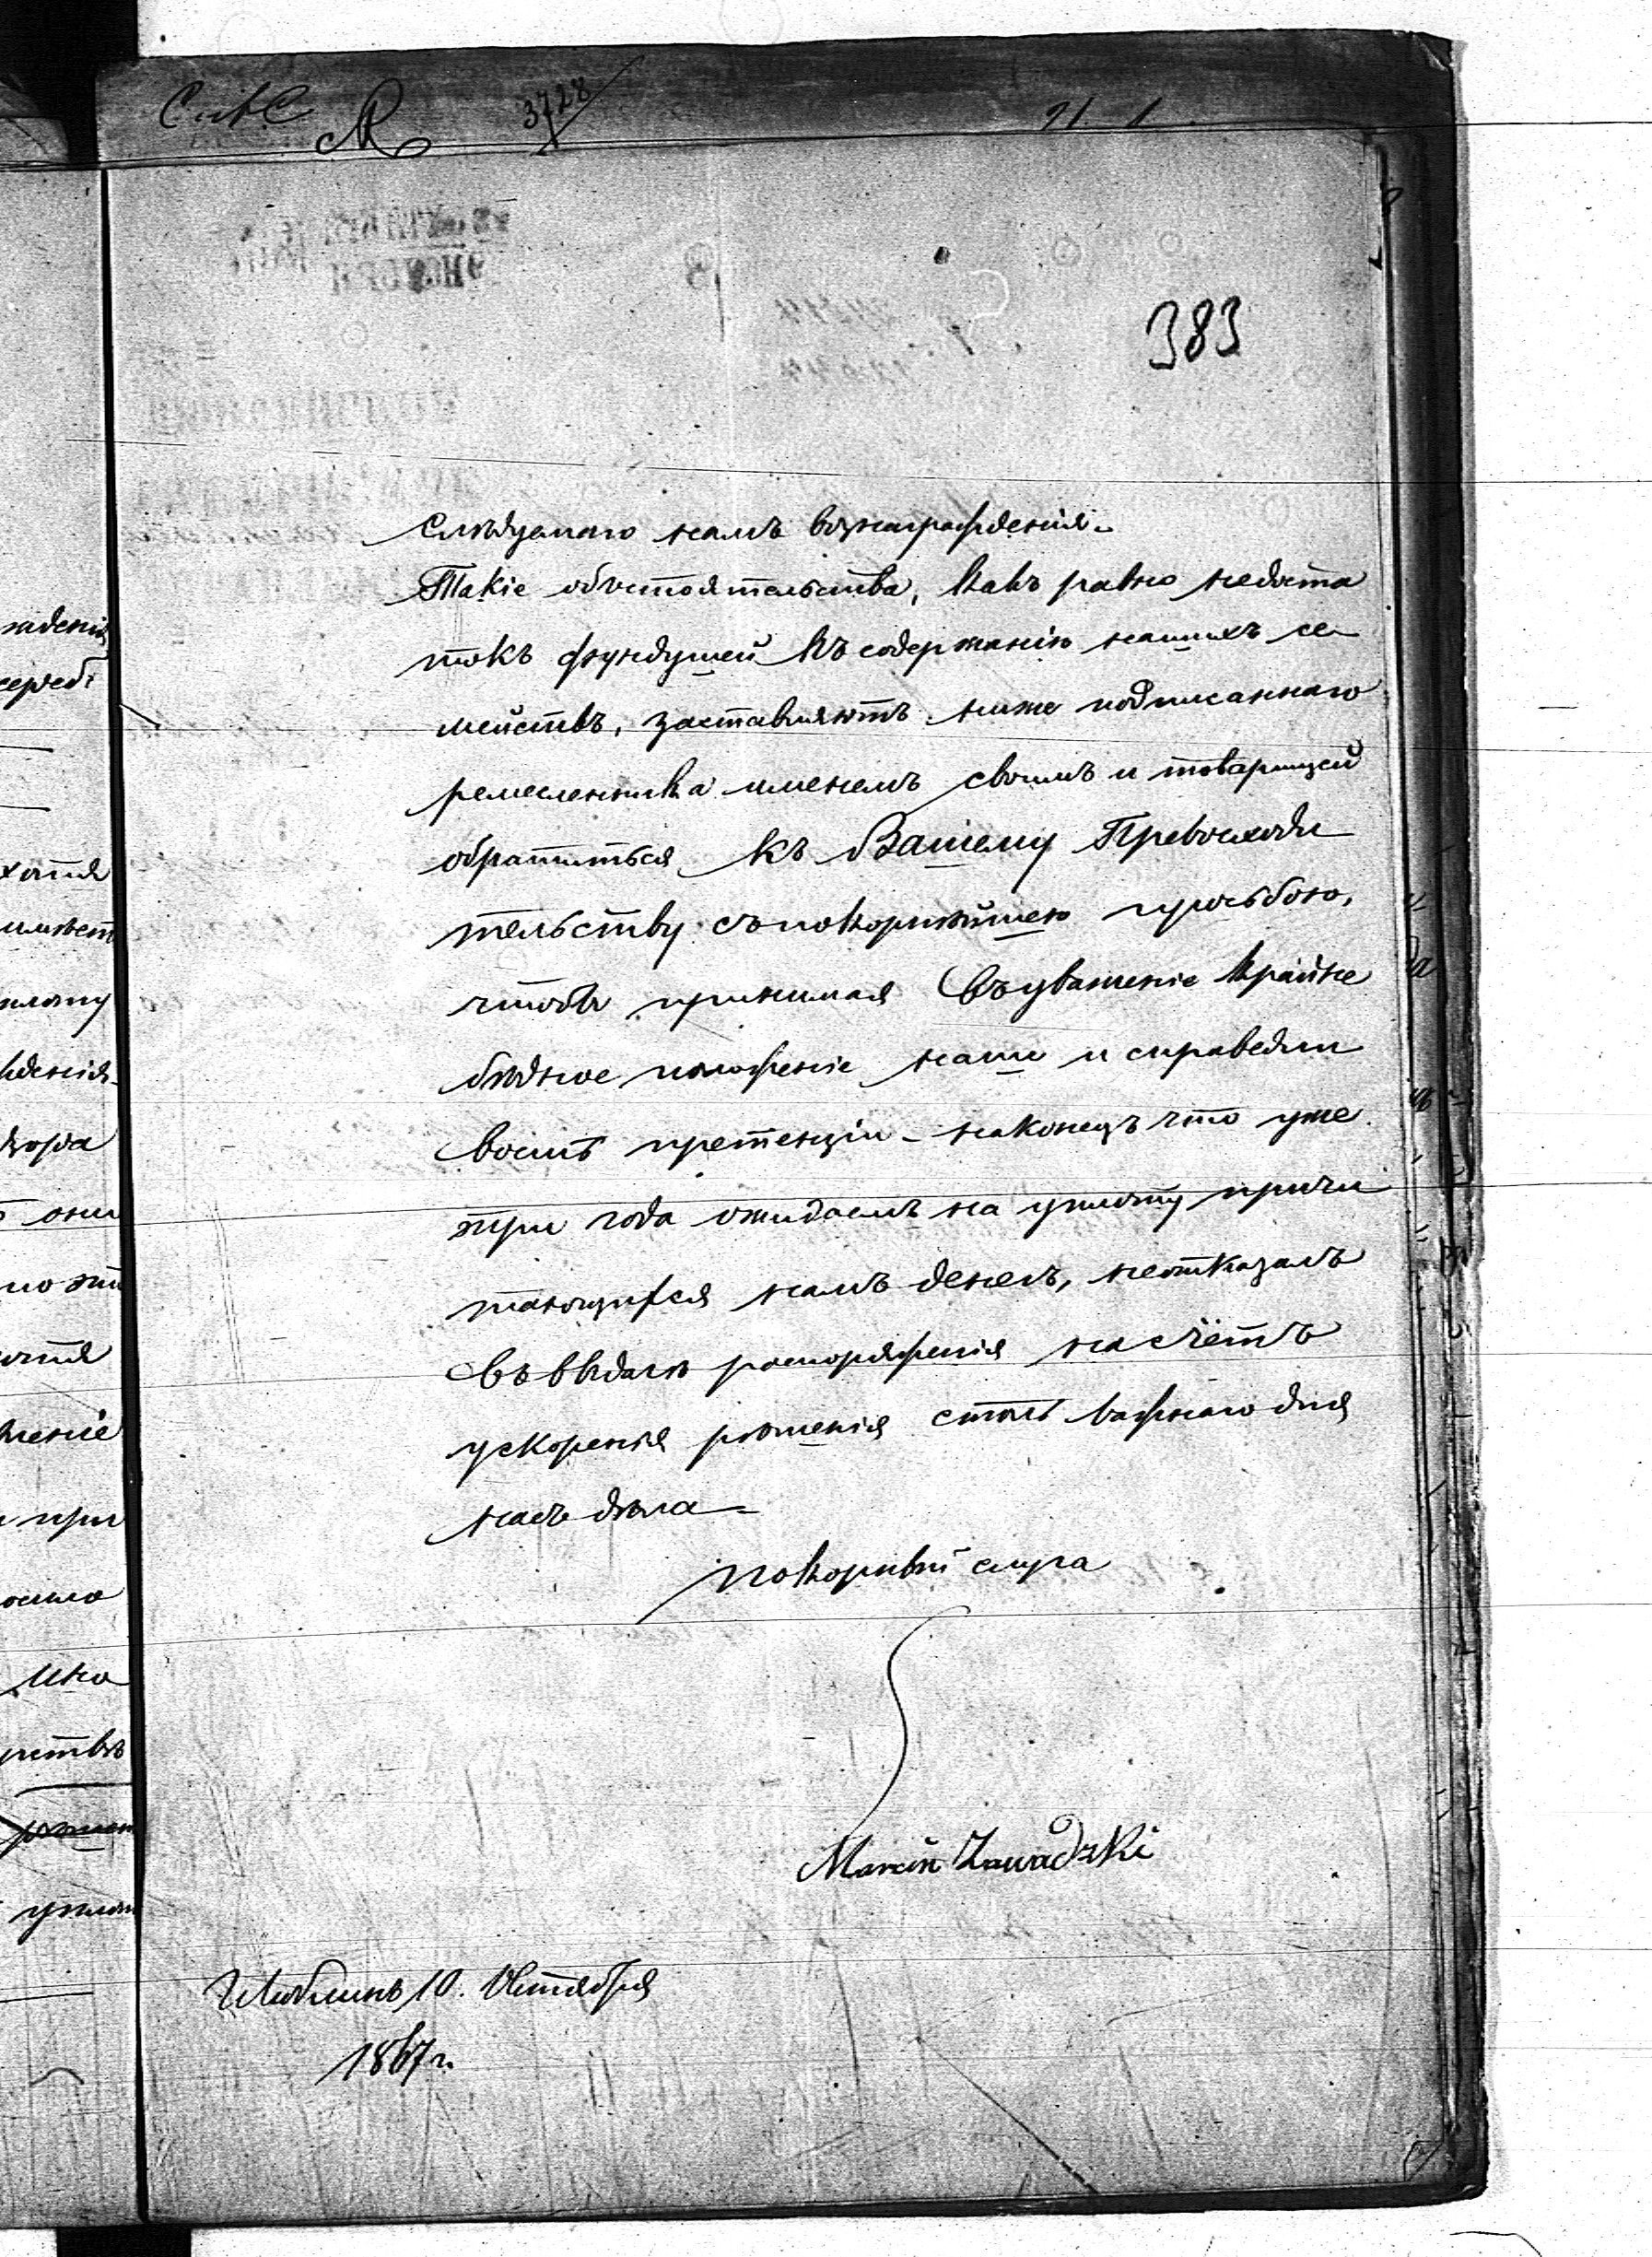 3728
383
следуемаго намъ вознагражденія.
Такіе обстоятельства, какъ равно недоста
токъ фундушей къ содержанію нашихъ се
мействъ, заставляютъ ниже подписаннаго
ремесленника именемъ своимъ и товарищей
обратиться къ Вашему Превосходи
тельству съ покорнѣйшею просьбою,
чтобы принимая въ уваженіе крайне
бѣдное положеніе наше и справедли
вость претенціи - наконецъ что уже
три года ожидаемъ на уплату причи
тающихся намъ денегъ, неотказалъ
въ выдачѣ распоряженія на счётъ
ускоренія рѣшенія столь важнаго для
насъ дѣла
покорный слуга
Marcin Zawadzki
Люблинъ 10. Октября
1867 г.